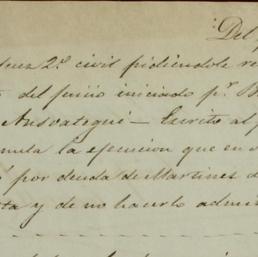 Del
Juez 2.º civil pidiendole re
del juicio iniciado p.r B
Ansoategui — Escrito al p
mula la ejecucion que en s
por deuda de Martines d
ta y de no hacerlo admi